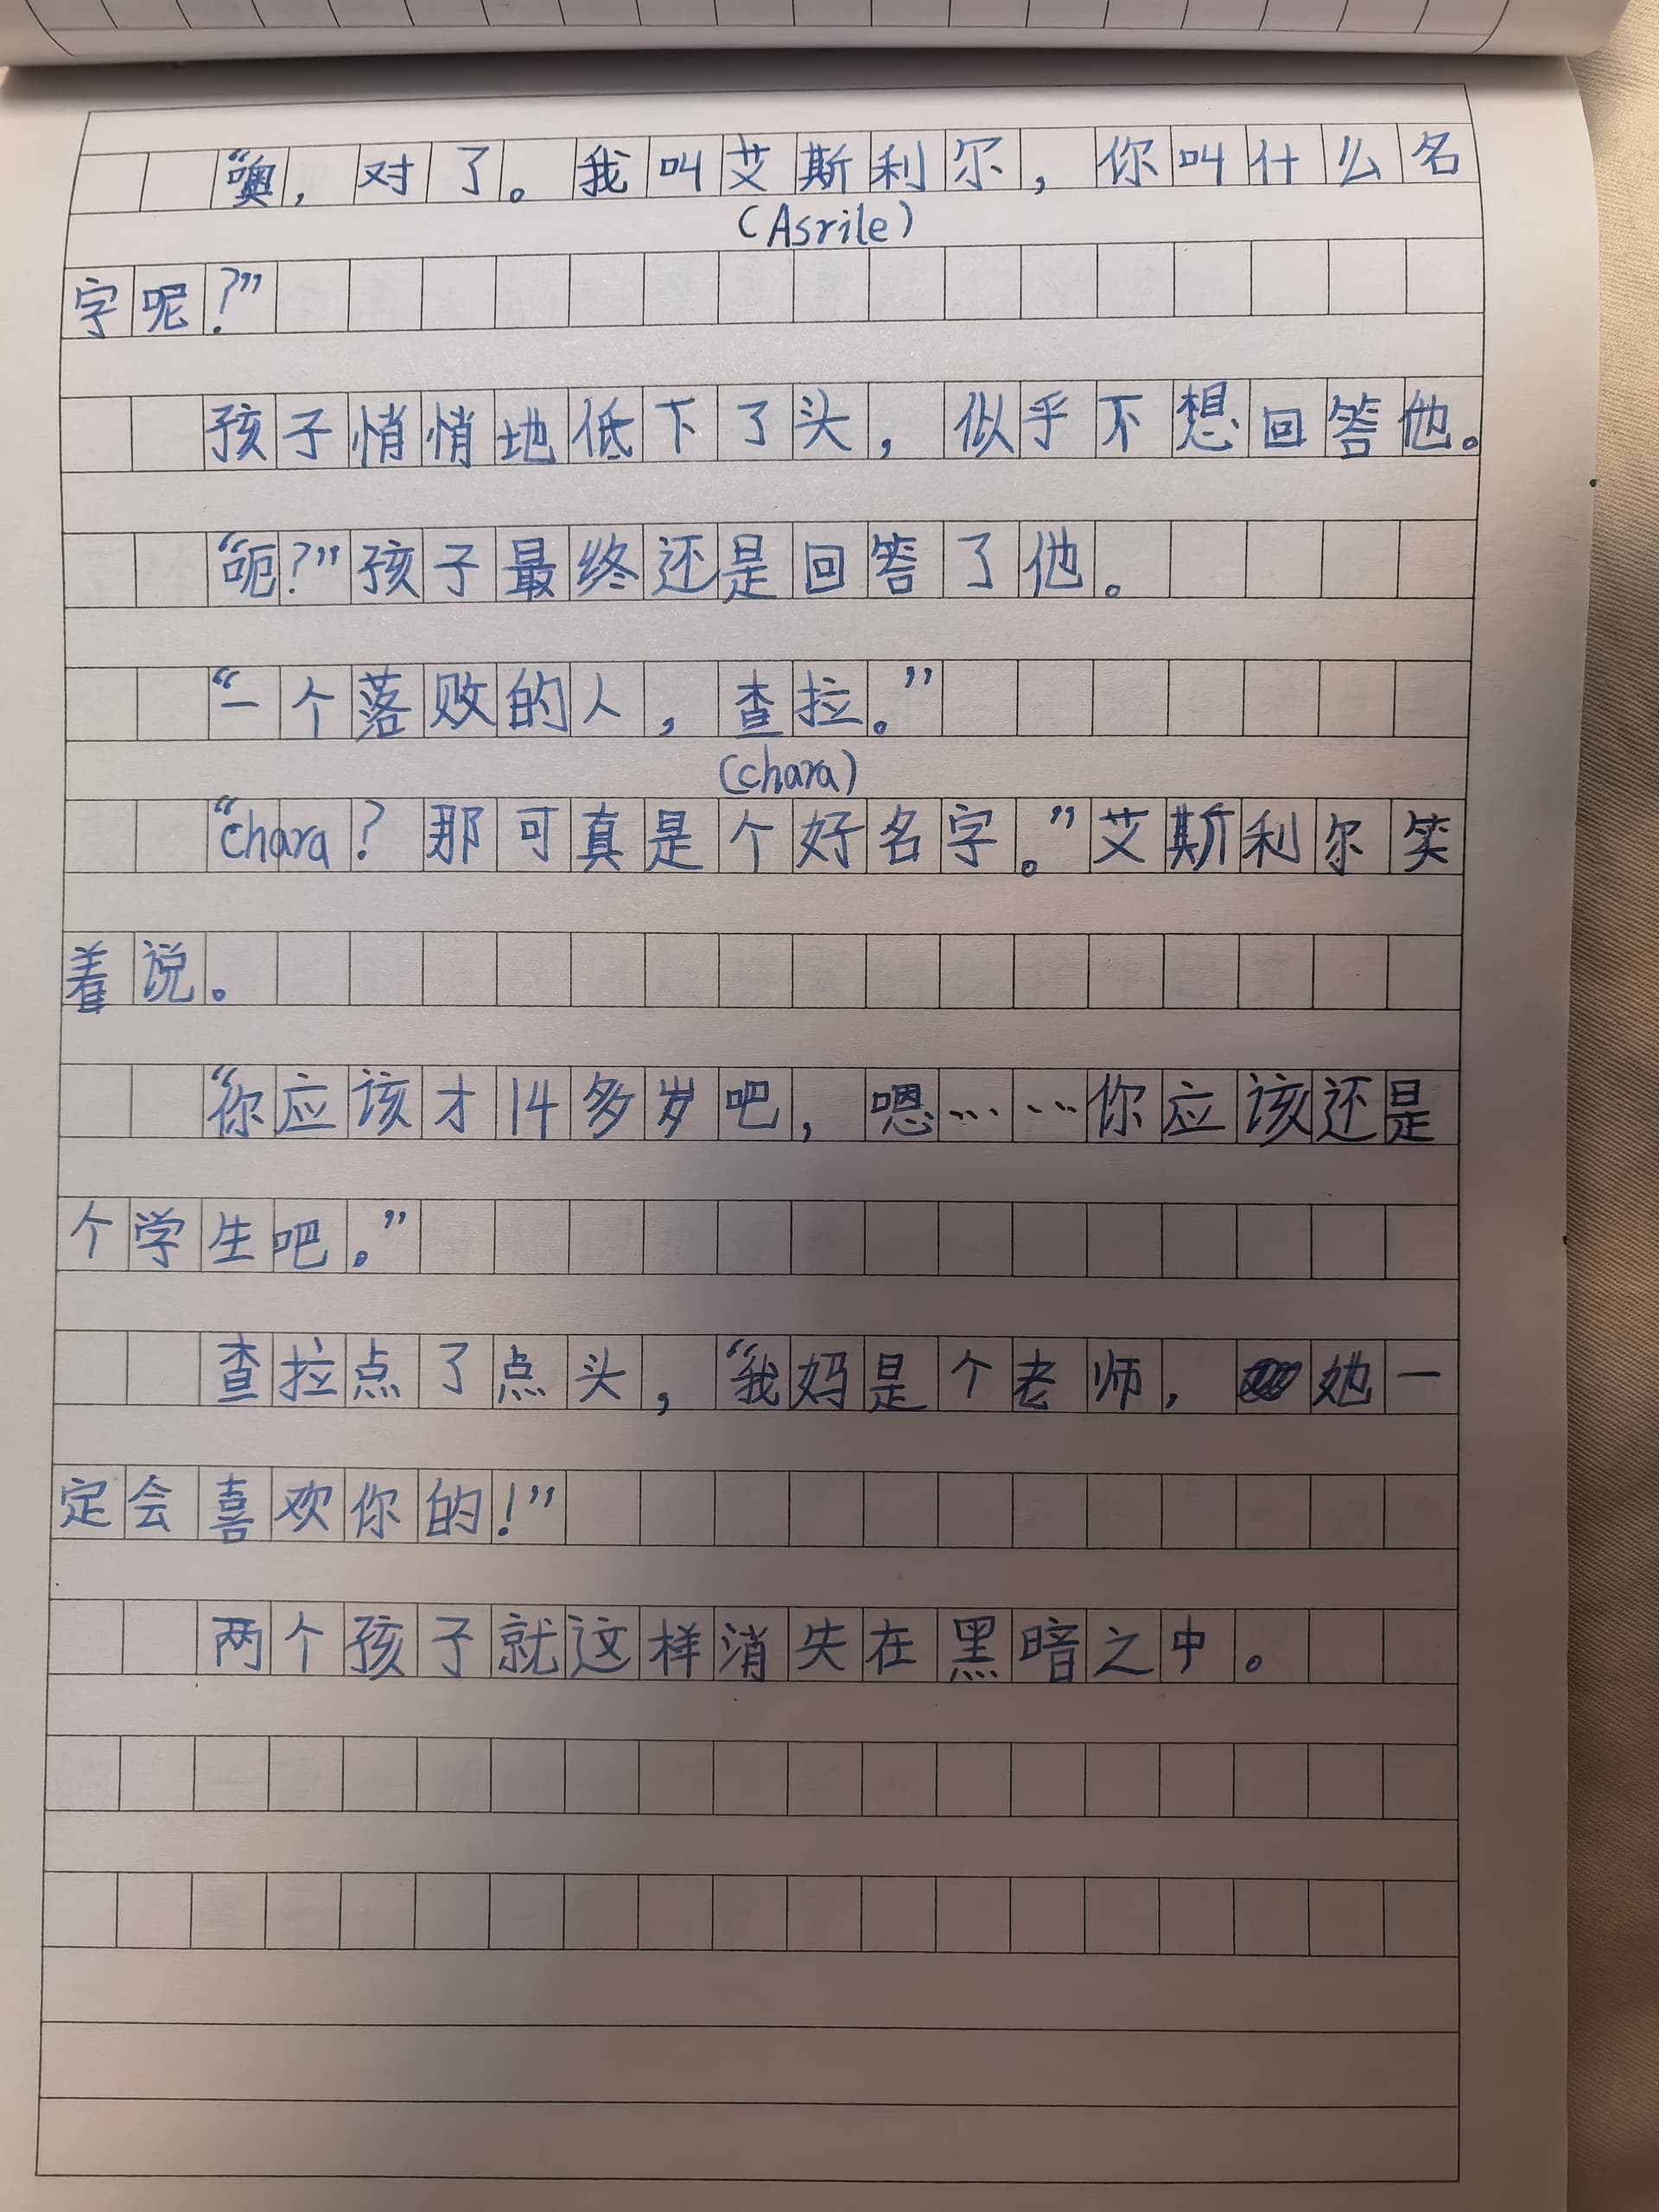 “噢，对了。我叫艾斯利尔，你叫什么名
(Asrile)
字呢？”
孩子悄悄地低下了头，似乎不想回答他。
“呃？”孩子最终还是回答了他。
“一个落败的人，查拉。”
(chara)
“chara？那可真是个好名字。”艾斯利尔笑
着说。
“你应该才14多岁吧，嗯……你应该还是
个学生吧。”
查拉点了点头，“我妈是个老师，她一
定会喜欢你的！”
两个孩子就这样消失在黑暗之中。